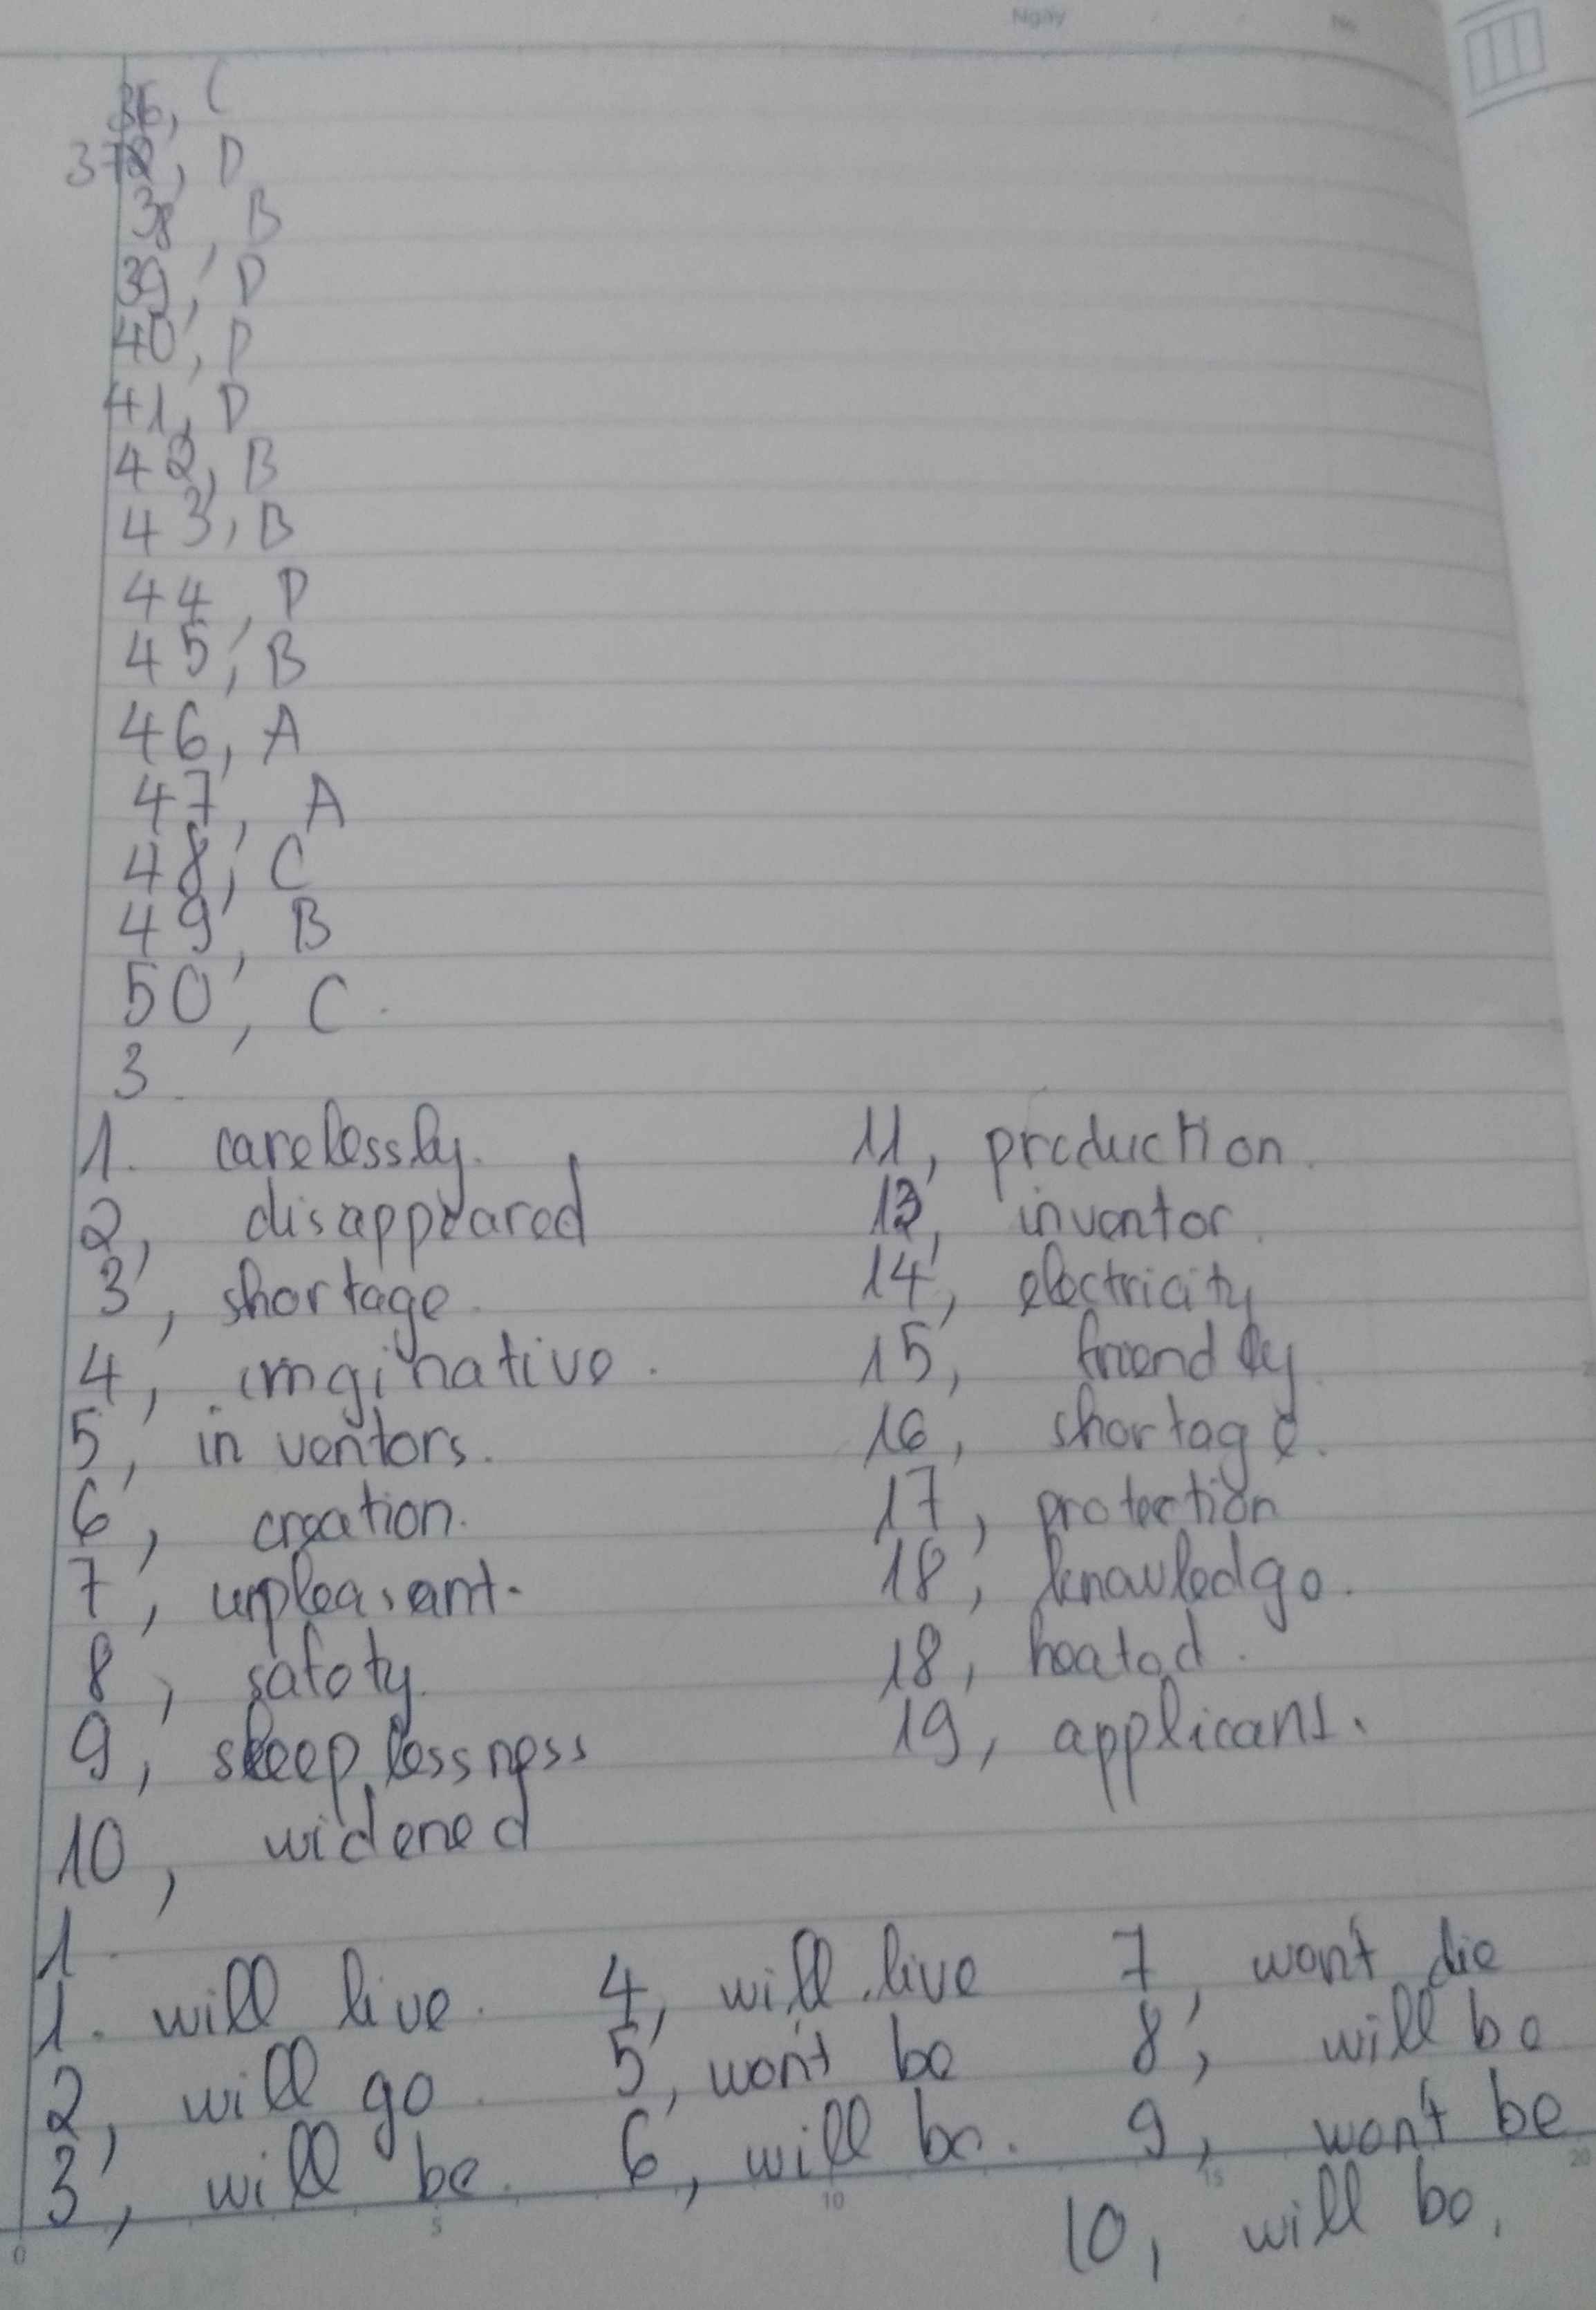 Ngày / / No
36, C
37, D
38, B
39, D
40, D
41, D
42, B
43, B
44, D
45, B
46, A
47, A
48, C
49, B
50, C.
3
1. carelessly. 11, production.
2, disappeared 13, inventor.
3, shortage. 14, electricity
4, imginative. 15, friendly.
5, inventors. 16, shortage.
6, creation. 17, protection
7, unpleasant. 18, knowledge.
8, safety. 18, heated.
9, sleeplessness 19, applicant.
10, widened
1.
1. will live. 4, will live 7, won't die
2, will go. 5, won't be 8, will be
3, will be. 6, will be. 9, won't be
10, will be.
0 5 10 15 20